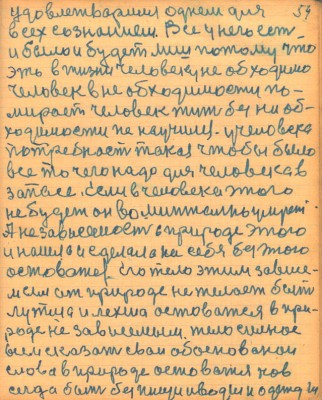 удовлетварит одном для 59
всех сознанием. Все у него есть
и было и будет лиш потому что
эта в жизни человеку не обходимо
человек в не обходимости по-
мирает человек тут без ни об-
ходимости не научился. у человека
потребность такая чтобы было
все то чего надо для человека в
запасе. Если в человека этого
не будет он во мыттельно умрет.
А независемость в природе этого
и нашла и сделала на себя без этого
остоватся его тело этим завис-
мелем от природе не желает быть
лутше и легше остоватся в при-
роде не зависемым. тело сильное
всем сказать свои обоснованои
слова в природе остоватся нов
сегда быть без пищи и воды и одежды и